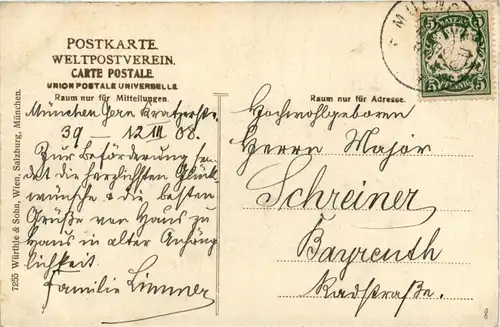 POSTKARTE.
WELTPOSTVEREIN.
CARTE POSTALE.
UNION POSTALE UNIVERSELLE.
Raum nur für Mitteilungen.
München Gern Kratzerstr.
39 – 12 III 08.
Zur Beförderung sen-
det die herzlichsten Glück-
wünsche & die besten
Grüße von Haus zu
Haus in alter Anhäng-
lichkeit.
Familie Limmer
Raum nur für Adresse.
Hochwohlgeboren
Herrn Major
Schreiner
Bayreuth
Radstraße.
7255 Würthle & Sohn, Wien, Salzburg, München.
BAYERN
5 5
PFENNIG